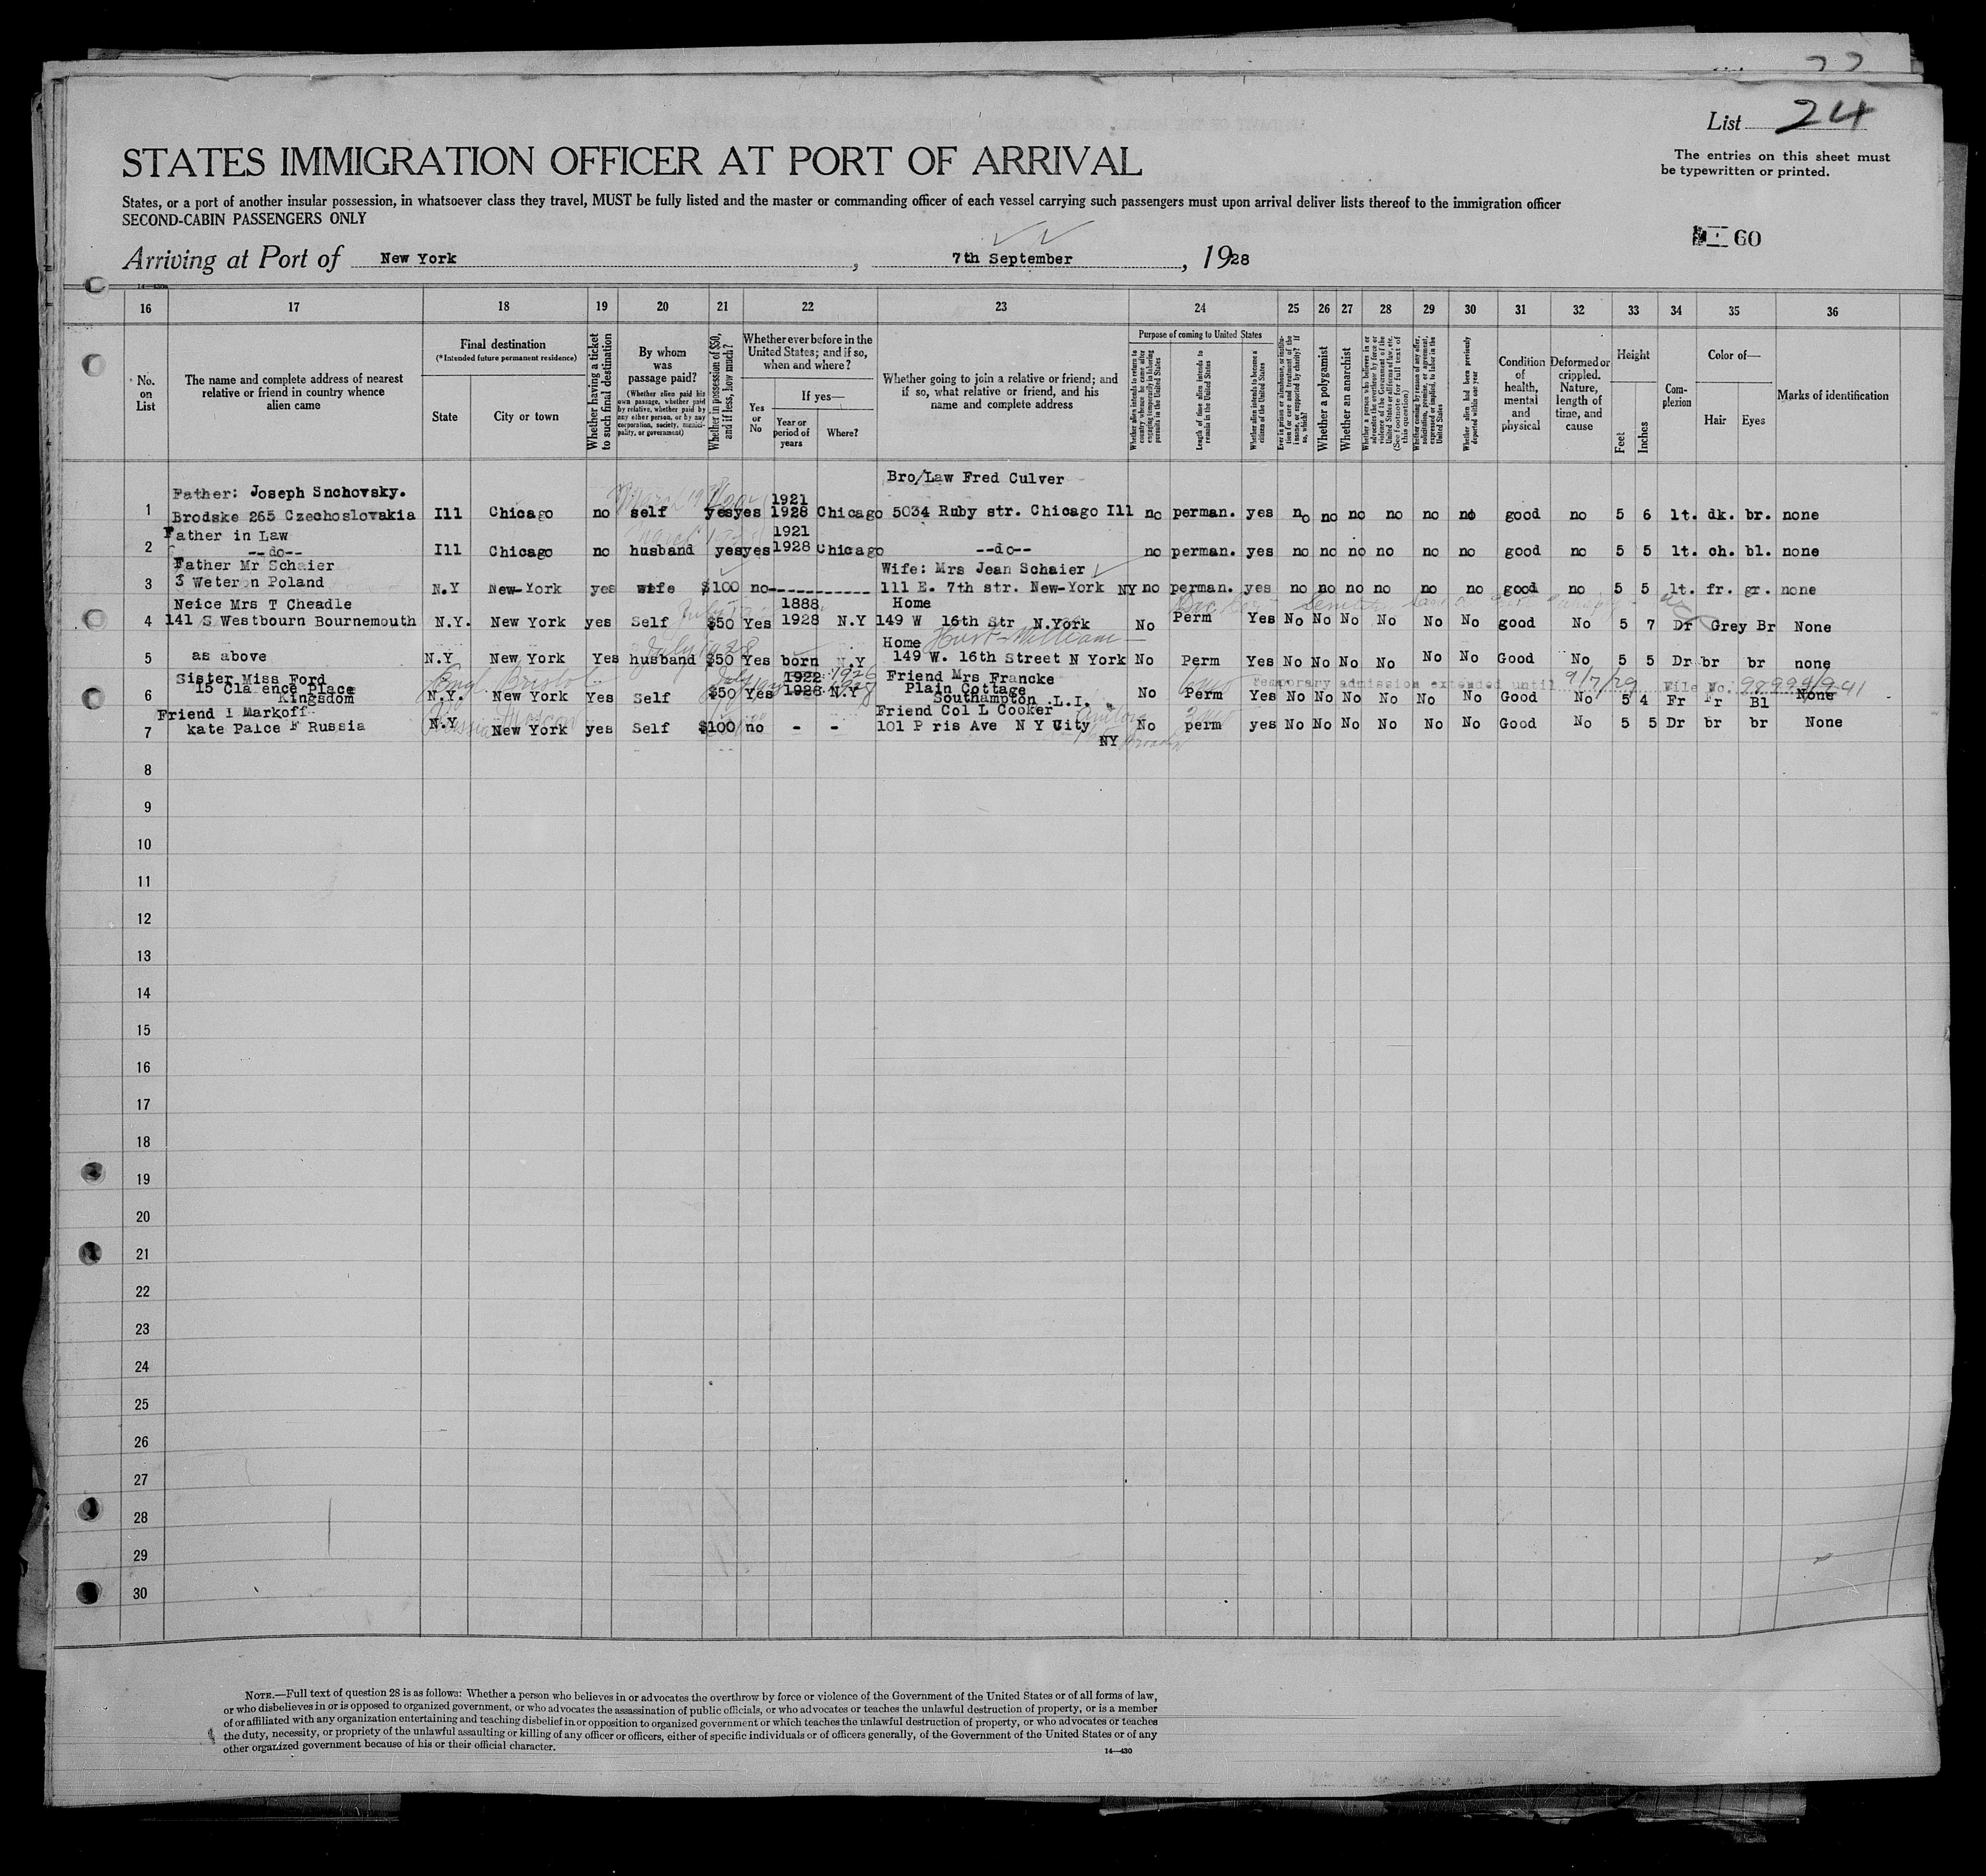 List 24
STATES IMMIGRATION OFFICER AT PORT OF ARRIVAL
The entries on this sheet must
be typewritten or printed.
States, or a port of another insular possession, in whatsoever class they travel, MUST be fully listed and the master or commanding officer of each vessel carrying such passengers must upon arrival deliver lists thereof to the immigration officer
SECOND-CABIN PASSENGERS ONLY
60
Arriving at Port of New York, 7th September, 1928
16 17 18 19 20 21 22 23 24 25 26 27 28 29 30 31 32 33 34 35 36
No. on List
The name and complete address of nearest relative or friend in country whence alien came
Final destination
(*Intended future permanent residence)
State
City or town
Whether having a ticket to such final destination
By whom was passage paid?
(Whether alien paid his own passage, whether paid by relative, whether paid by any other person, or by any corporation, society, municipality, or government)
Whether in possession of $50, and if less, how much?
Whether ever before in the United States; and if so, when and where?
Yes or No
If yes—
Year or period of years
Where?
Whether going to join a relative or friend; and if so, what relative or friend, and his name and complete address
Purpose of coming to United States
Whether alien intends to return to country whence he came after engaging temporarily in laboring pursuits in the United States
Length of time alien intends to remain in the United States
Whether alien intends to become a citizen of the United States
Ever in prison or almshouse, or institution for care and treatment of the insane, or supported by charity? If so, which?
Whether a polygamist
Whether an anarchist
Whether a person who believes in or advocates the overthrow by force or violence of the Government of the United States or all forms of law, etc. (See footnote for full text of this question)
Whether coming by reason of any offer, solicitation, promise, or agreement, expressed or implied, to labor in the United States
Whether alien had been previously deported within one year
Condition of health, mental and physical
Deformed or crippled. Nature, length of time, and cause
Height
Feet
Inches
Complexion
Color of—
Hair
Eyes
Marks of identification
Father: Joseph Snchovsky. 1921 Bro/Law Fred Culver
1 Brodske 265 Czechoslovakia Ill Chicago no self yes yes 1928 Chicago 5034 Ruby str. Chicago Ill no perman. yes no no no no no no good no 5 6 lt. dk. br. none
Father in Law 1921
2 --do-- Ill Chicago no husband yes yes 1928 Chicago --do-- no perman. yes no no no no no no good no 5 5 lt. ch. bl. none
Father Mr Schaier Wife: Mrs Jean Schaier
3 3 Weteron Poland N.Y New-York yes wife $100 no------------ 111 E. 7th str. New-York NY no perman. yes no no no no no no good no 5 5 lt. fr. gr. none
Neice Mrs T Cheadle 1888 Home
4 141 S Westbourn Bournemouth N.Y. New York yes Self $50 Yes 1928 N.Y 149 W 16th Str N.York No Perm Yes No No No No No No good No 5 7 Dr Grey Br None
July 1928 Home Hurst William
5 as above N.Y New York Yes husband $50 Yes born N.Y 149 W. 16th Street N York No Perm Yes No No No No No No Good No 5 5 Dr br br none
Sister Miss Ford Engl Bristol 1922 1926 Friend Mrs Francke Temporary admission extended until 9/7/29 File No.
6 15 Cla ence Place Kingsdom N.Y. New York Yes Self $50 Yes 1928 N.Y 1928 Plain Cottage Southampton .L.I. No Perm Yes No No No No No No Good No 5 4 Fr Fr Bl None
Friend 1 Markoff Russia Moscow Friend Col L Cooker
7 kate Palce F Russia N.Y New York yes Self $100 no - - 101 P ris Ave N Y City NY No perm yes No No No No No No Good No 5 5 Dr br br None
8
9
10
11
12
13
14
15
16
17
18
19
20
21
22
23
24
25
26
27
28
29
30
NOTE.—Full text of question 28 is as follows: Whether a person who believes in or advocates the overthrow by force or violence of the Government of the United States or of all forms of law,
or who disbelieves in or is opposed to organized government, or who advocates the assassination of public officials, or who advocates or teaches the unlawful destruction of property, or is a member
of or affiliated with any organization entertaining and teaching disbelief in or opposition to organized government or which teaches the unlawful destruction of property, or who advocates or teaches
the duty, necessity, or propriety of the unlawful assaulting or killing of any officer or officers, either of specific individuals or of officers generally, of the Government of the United States or of any
other organized government because of his or their official character.
14—430